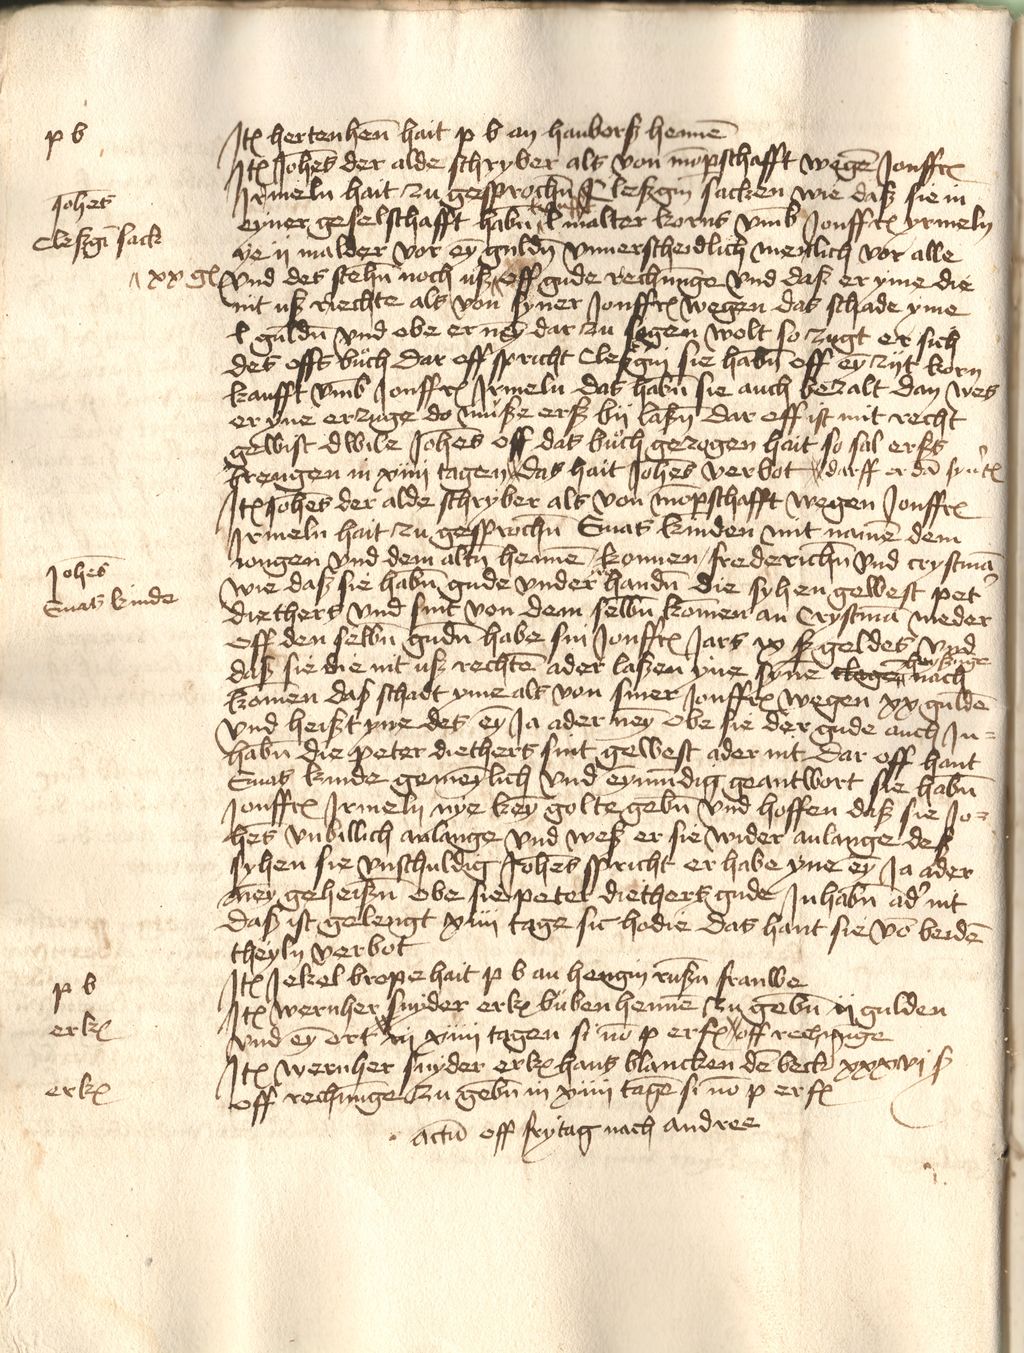 p b
Itꝫ hertenheñ hait p b an hanborß hennē
Itꝫ Johēs der alde schryber als von mōpschafft wegē Jonffrꝫ
Irmeln hait zu gesprochn̄ Cleßgin sacken wie daß sie in
Johēs
Cleßgī sack
eyner geselschafft habn̄ kaufft l malter korns vmb Jonffrꝫ yrmeln
ye ii malder vor ey guldn̄ vnuerscheidlich menlich vor alle
xx gl
vnd des stehn̄ noch uß off gude rechnūge vnd daß er yme die
nit uß riechte als von syner Jonffrꝫ wegen das schade yme
l guldn̄ vnd obe er ney dar zu sagen wolt so zugt er sich
des offs buch dar off spricht Cleßgin sie habn̄ off ey zijt korn
kaufft vmb Jonffrꝫ Irmeln das habn̄ sie auch bezalt dan wes
er yne erzuge do muße erß bij laßn̄ dar off ist mit recht
gewist dwile Johēs off das buch gezogen hait so sal erßs
brengen in xiiii tagen das hait Johēs verbot darff er dā
Itꝫ Johēs der alde schryber als von mōpschafft wegen Jonffrꝫ
Irmeln hait zu gesprochn̄ Snats kinden mit namē dem
jongen vnd dem altn̄ hennē konnen frederichn̄ vnd crystmā
Johēs
Snats kinde
wie daß sie habn̄ gude vnder handn̄ die syhen gewest pet̄
diethers vnd sint von dem selbn̄ komen an Crystmā nieder
off den selbn̄ gudn̄ habe sin Jonffrꝫ Jars ix ß geldes vnd
daß sie die nit uß rechten ader laßen yne syne nach
komen daß schadt yme als von siner Jonffrꝫ wegen xx guldē
vnd heißt yne des ey Ja ader ney obe sie der gude auch Jn=
habn̄ die peter diethers sint gewest ader nit dar off hant
Snats kinde gemeynlich vnd eynmudig geantwort sie habn̄
Jonffrꝫ Irmeln nye key golte gebn̄ vnd hoffen daß sie Jo=
hēs vnbillich anlange vnd weß er sie wider anlange deß
syhen sie vnschuldig Johēs spricht er habe yne ey Ja ader
ney geheißn̄ obe sie peter diethers gude Jnhabn̄ ad̕ nit
daß ist gelengt xiiii tage sic̄ hodie das hant sie vō beidē
theyln verbot
p b
Itꝫ Jekel brope hait p b an hengin rußn̄ frauwe
erkꝫ
Itꝫ wernher snyder erkꝫ bubenhennē zu gebn̄ ii gulden
vnd ey ort in xiiii tagen si nō p erfꝫ off rechnūge
erkꝫ
Itꝫ wernher snyder erkꝫ hans blancken dē beck xxxvi ß
off rechnūge zu gebn̄ in xiiii tagē si nō p erfꝫ
actū off frytag nach andree